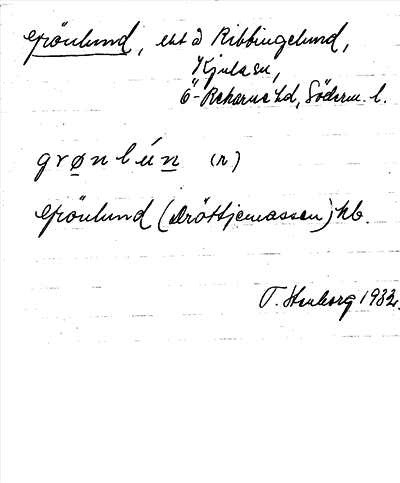 Grönlund, ext å Ribbingelund,
Kjula sn,
Ö-Rekarne hd, Söderm. l.
grønlún (n)
Grönlund (Dröttjemossen) kb.
T. 1932.